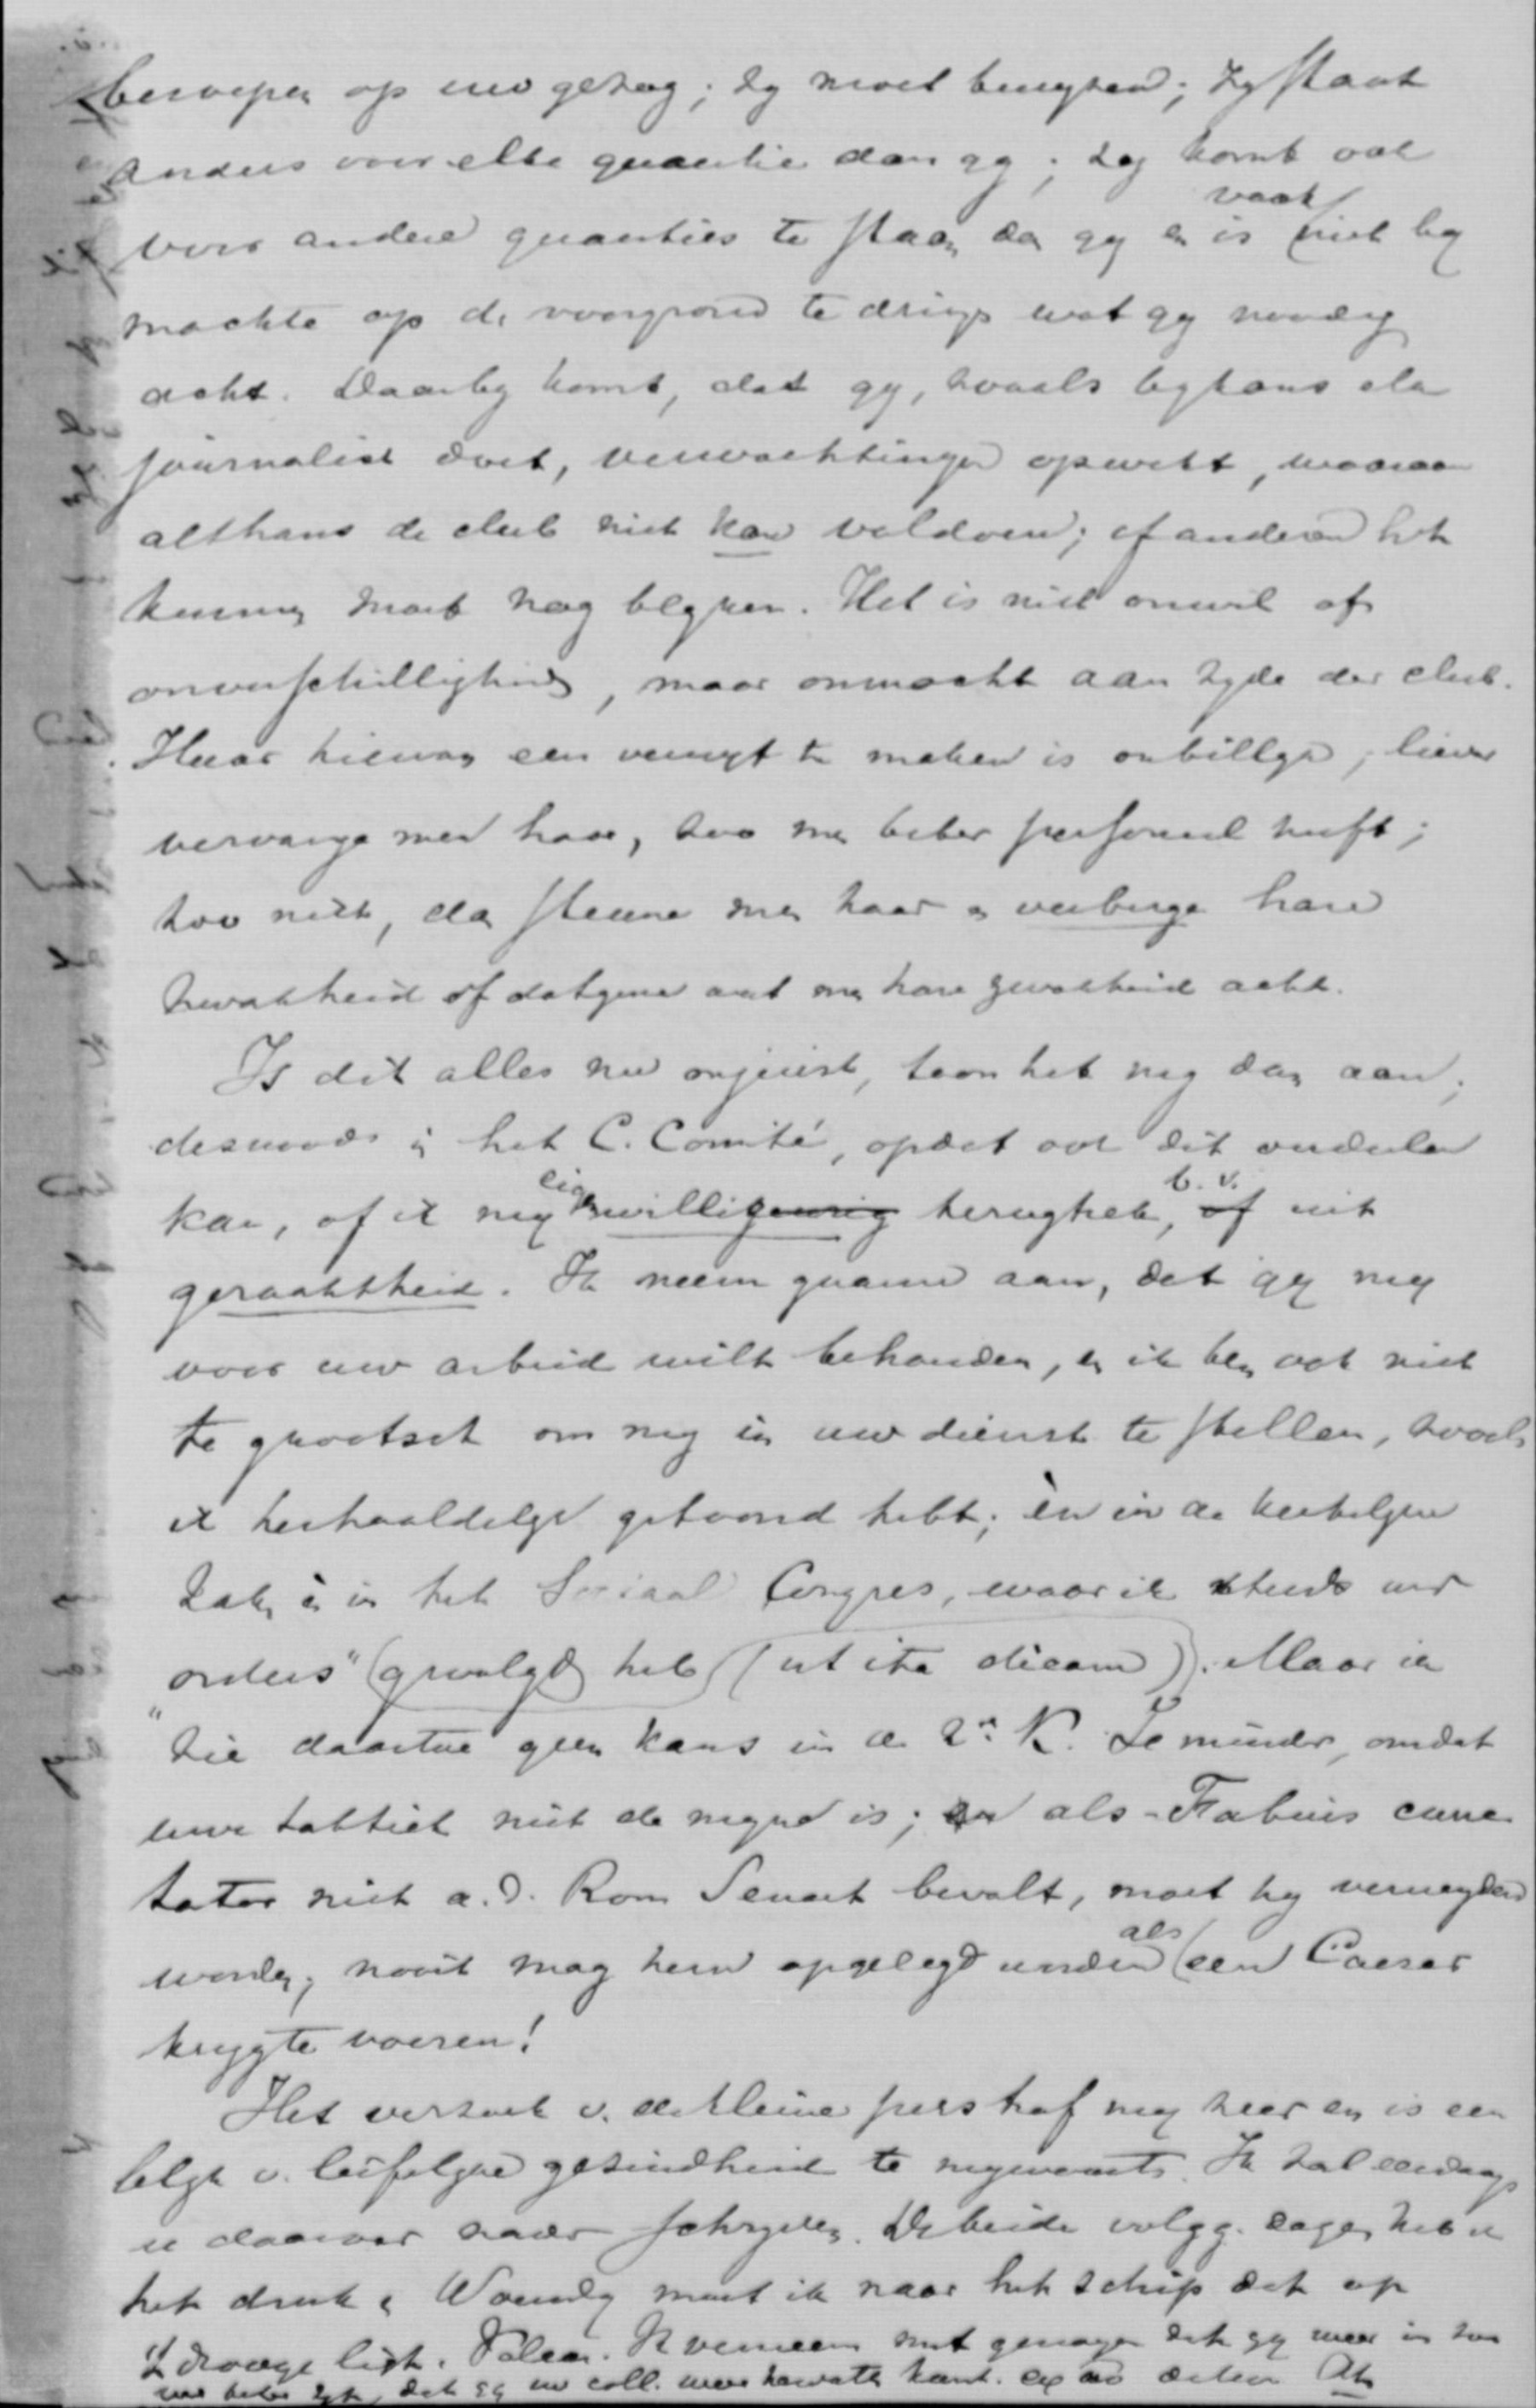 beroepen op uw gezag; zy moet bewyzen; zy staat
anders voor elke quaestie dan gy; zy komt ook
voor andere quaesties te staan dan gy en is vaak niet by
machte op de voorgrond te dringen wat gy noodig
acht. Daarby komt, dat gy, zooals althans als
journalist doet, verwachtingen opwekt, waaraan
althans de club niet kan voldoen; of anderen het
kunnen moet nog blyken. Het is niet onwil of
onverschilligheid, maar onmacht aan zyde der club.
Haar hiervan een verwyt te maken is onbillyk; liever
vervange men haar, zoo men beter personeel heeft;
zoo niet, dan steune men haar en verberge hare
zwakheid of datgene wat men hare zwakheid acht.
Is dit alles nu onjuist, toon het my dan aan,
desnoods in het C. Comité, opdat ook dit oordeelen
kan, of ik my eigenwillig terugtrek, b.v. uit
geraaktheid. Ik neem gaarne aan, dat gy my
voor uw arbeid wilt behouden, en ik ben ook niet
te grootsch om my in uw dienst te stellen, zooals
ik herhaaldelyk getoond heb; èn in de kerkelyke
zaken èn in het Sociaal Congres, waar ik steeds uw
"orders" gevolgd heb (ut ita dicam). Maar ik
zie daartoe geen kans in de 2e K. Te minder, omdat
uwe taktiek niet de myne is; en als Fabius cunc
tator niet a.d. Rom Senaat bevalt, moet hy vermeden
worden; nooit mag hem opgelegd worden als een Caesar
kryg te voeren!
Het verzoek v. de kleine pers trof my zeer en is een
blyk v. liefelyke gezindheid te mywaarts. Ik zal eerdaags
u daarover nader schryven. De beide volgg. dagen heb ik
het druk en Woensdag moet ik naar het schip dat op
't drooge ligt. Vale. Ik verneem met genoegen dat gy weer in
dat gy uw coll. weer hervatten kunt.